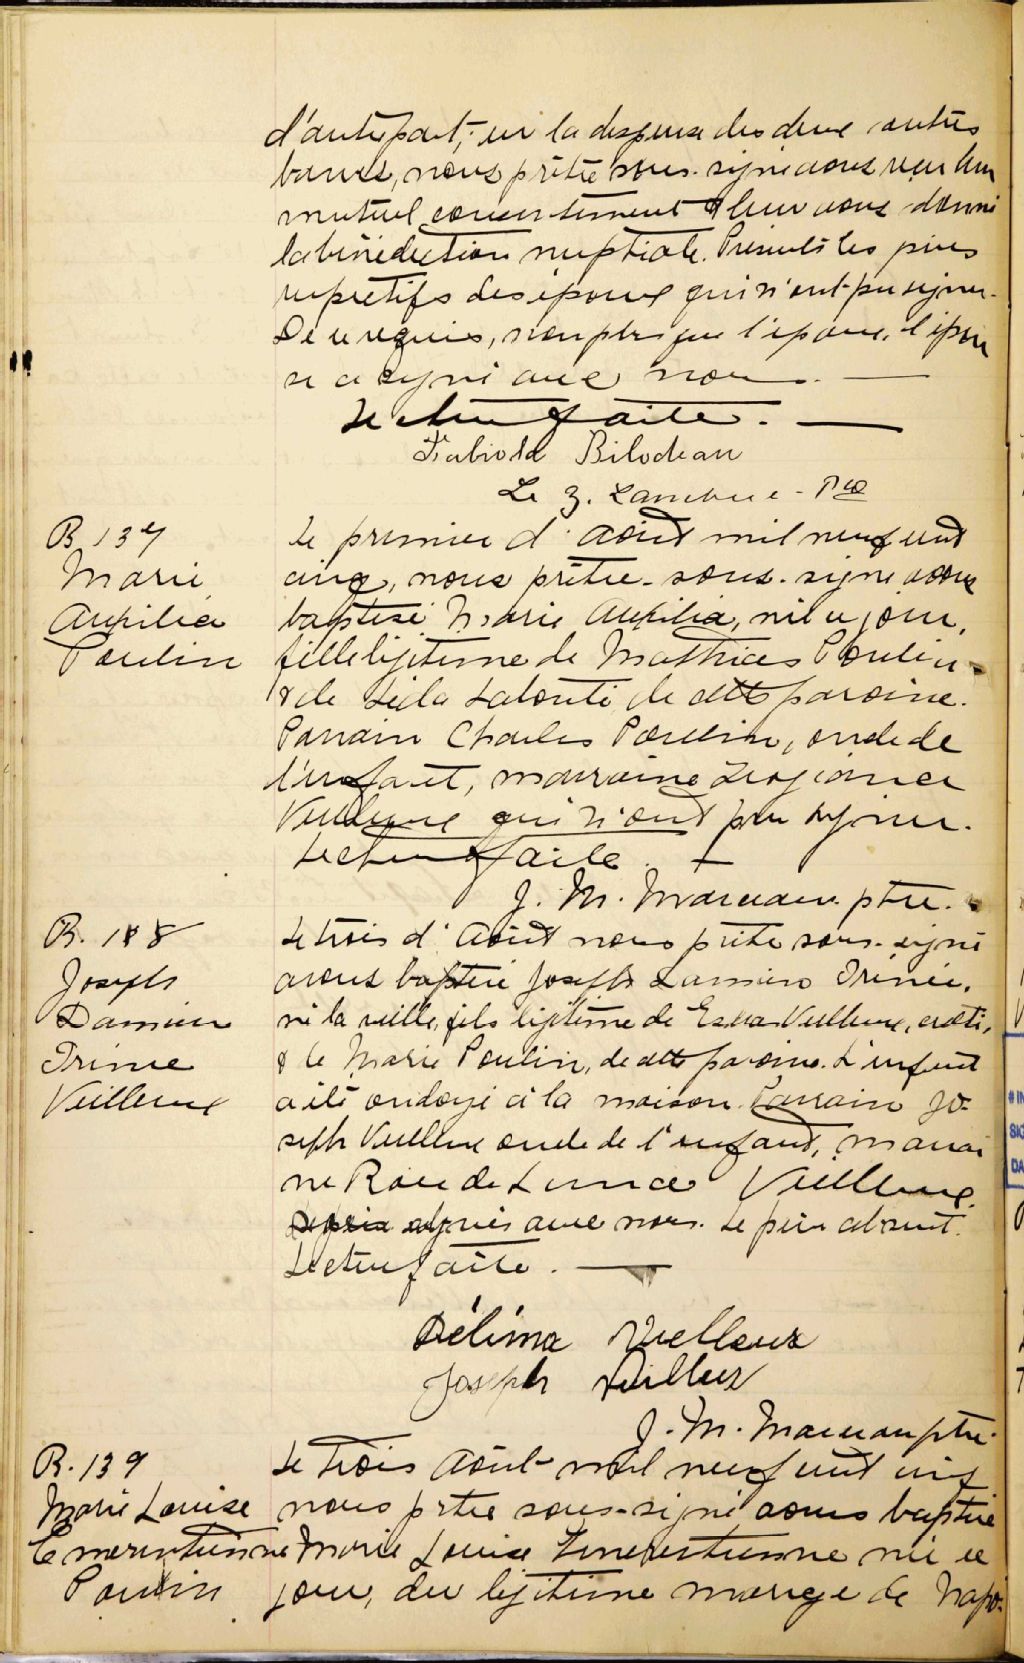 d'autre part, vu la dispense des deux autres
bancs, nous prêtre sous-signé avons reçu leur
mutuel consentement & leur avons donné
la bénédiction nuptiale. Présents les pères
respectifs des époux qui n'ont pu signer
De ce requis, non plus que l'époux. l'épou
se a signé avec nous.
Lecture faite.
Fabiola Bilodeau
B 137
Marie
Auxilia
Poulin
Le premier d'Août mil neuf cent
cinq, nous prêtre-sous-signé avons
baptisé Marie Auxilia, née ce jour,
fille légitime de Mathias Poulin
& de Léda Labonté de cette paroisse.
Parrain Charles Poulin, oncle de
l'enfant, marraine
Veilleux qui n'ont pu signer.
Lecture faite.
J. M. Marceau ptre.
B. 138
Joseph
Damien
Irénée
Veilleux
Le trois d'Août nous prêtre sous-signé
avons baptisé Joseph Damien Irénée,
né la veille, fils légitime de Veilleux,
& de Marie Poulin, de cette paroisse. L'enfant
a été ondoyé à la maison. Parrain Jo-
seph Veilleux oncle de l'enfant, marrai
ne Rose de Lima Veilleux.
signés avec nous. Le père absent.
Lecture faite.
Délima Vielleux
Joseph Veilleux
J. M. Marceau ptre.
B. 139
Marie Louise
Emerentienne
Poulin
Le trois Août mil neuf cent cinq
nous prtre sous-signé avons baptisé
Marie Louise Emerentienne née ce
jour, du légitime mariage de Napo-